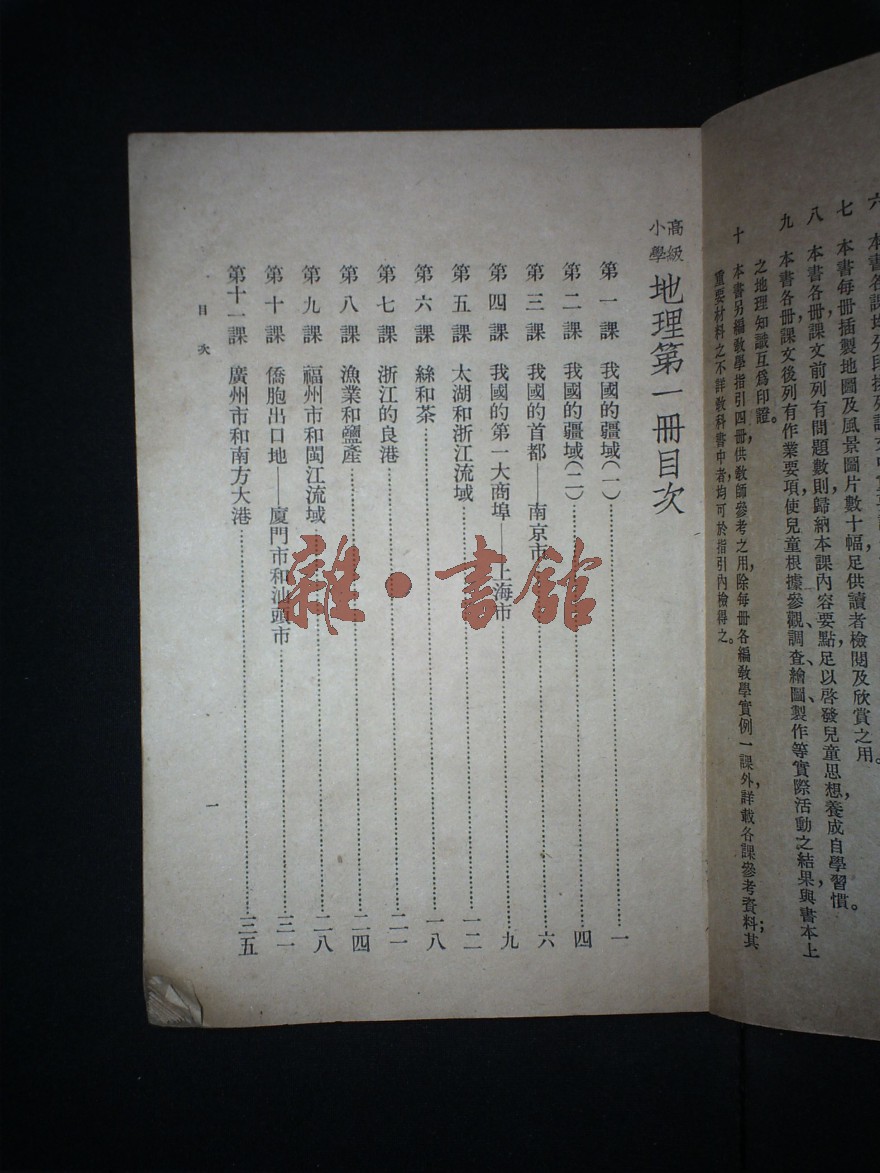 七　本書每冊插製地圖及風景圖片數十幅足供讀者檢閱及欣賞之用。
八　本書各冊課文前列有問題數則歸納本課內容要點足以啓發兒童思想，養成自學習慣。
九　本書各冊課文後列有作業要項使兒童根據參觀、調查、繪圖、製作等實際活動之結果，與書本上
之地理知識互爲印證。
十　本書另編教學指引四冊，供教師參考之用，除每冊各編教學實例一課外，詳載各課參考資料；其
重要材料之不詳教科書中者，均可於指引內檢得之。
高級小學 地理第一冊目次
第一課　我國的疆域(一)……一
第二課　我國的疆域(二)……四
第三課　我國的首都——南京市……六
第四課　我國的第一大商埠——上海市……九
第五課　太湖和浙江流域……一二
第六課　絲和茶……一八
第七課　浙江的良港……二一
第八課　漁業和鹽產……二四
第九課　福州市和閩江流域……二八
第十課　僑胞出口地——廈門市和汕頭市……三一
第十一課　廣州市和南方大港……三五
目次
一
雜·書館